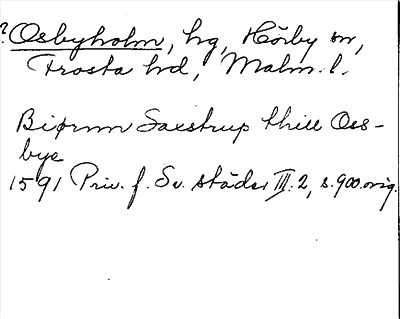 ? Osbyholm, hg, Hörby sn,
Frosta hd, Malm. l.
Biørnn Saxstrup thill Oss-
bye
1591 Priv. f. Sv. städer III:2, s. 900. orig.